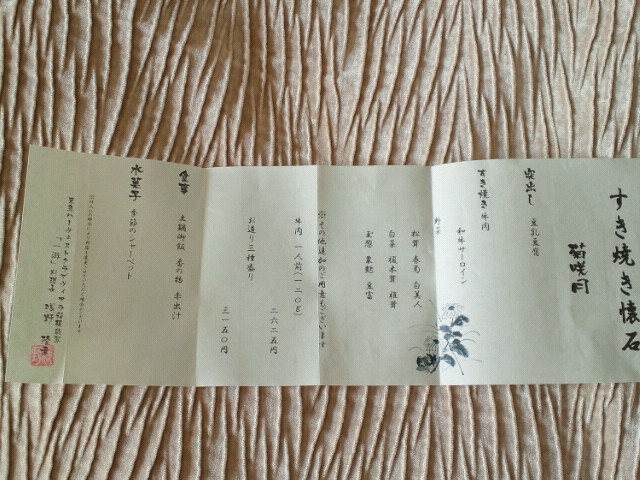 すき焼き懐石
菊咲月
突出し 豆乳豆腐
すき焼き 牛肉
和牛サーロイン
野菜
松茸 春菊 白美人
白菜 榎木茸 椎茸
玉葱 粟麩 豆富
※その他追加のご用意もございます
牛肉 一人前(一二〇g)
二六二五円
お造り三種盛り
三一五〇円
食事 土鍋御飯 香の物 赤出汁
水菓子 季節のシャーベット
料理長 浅野